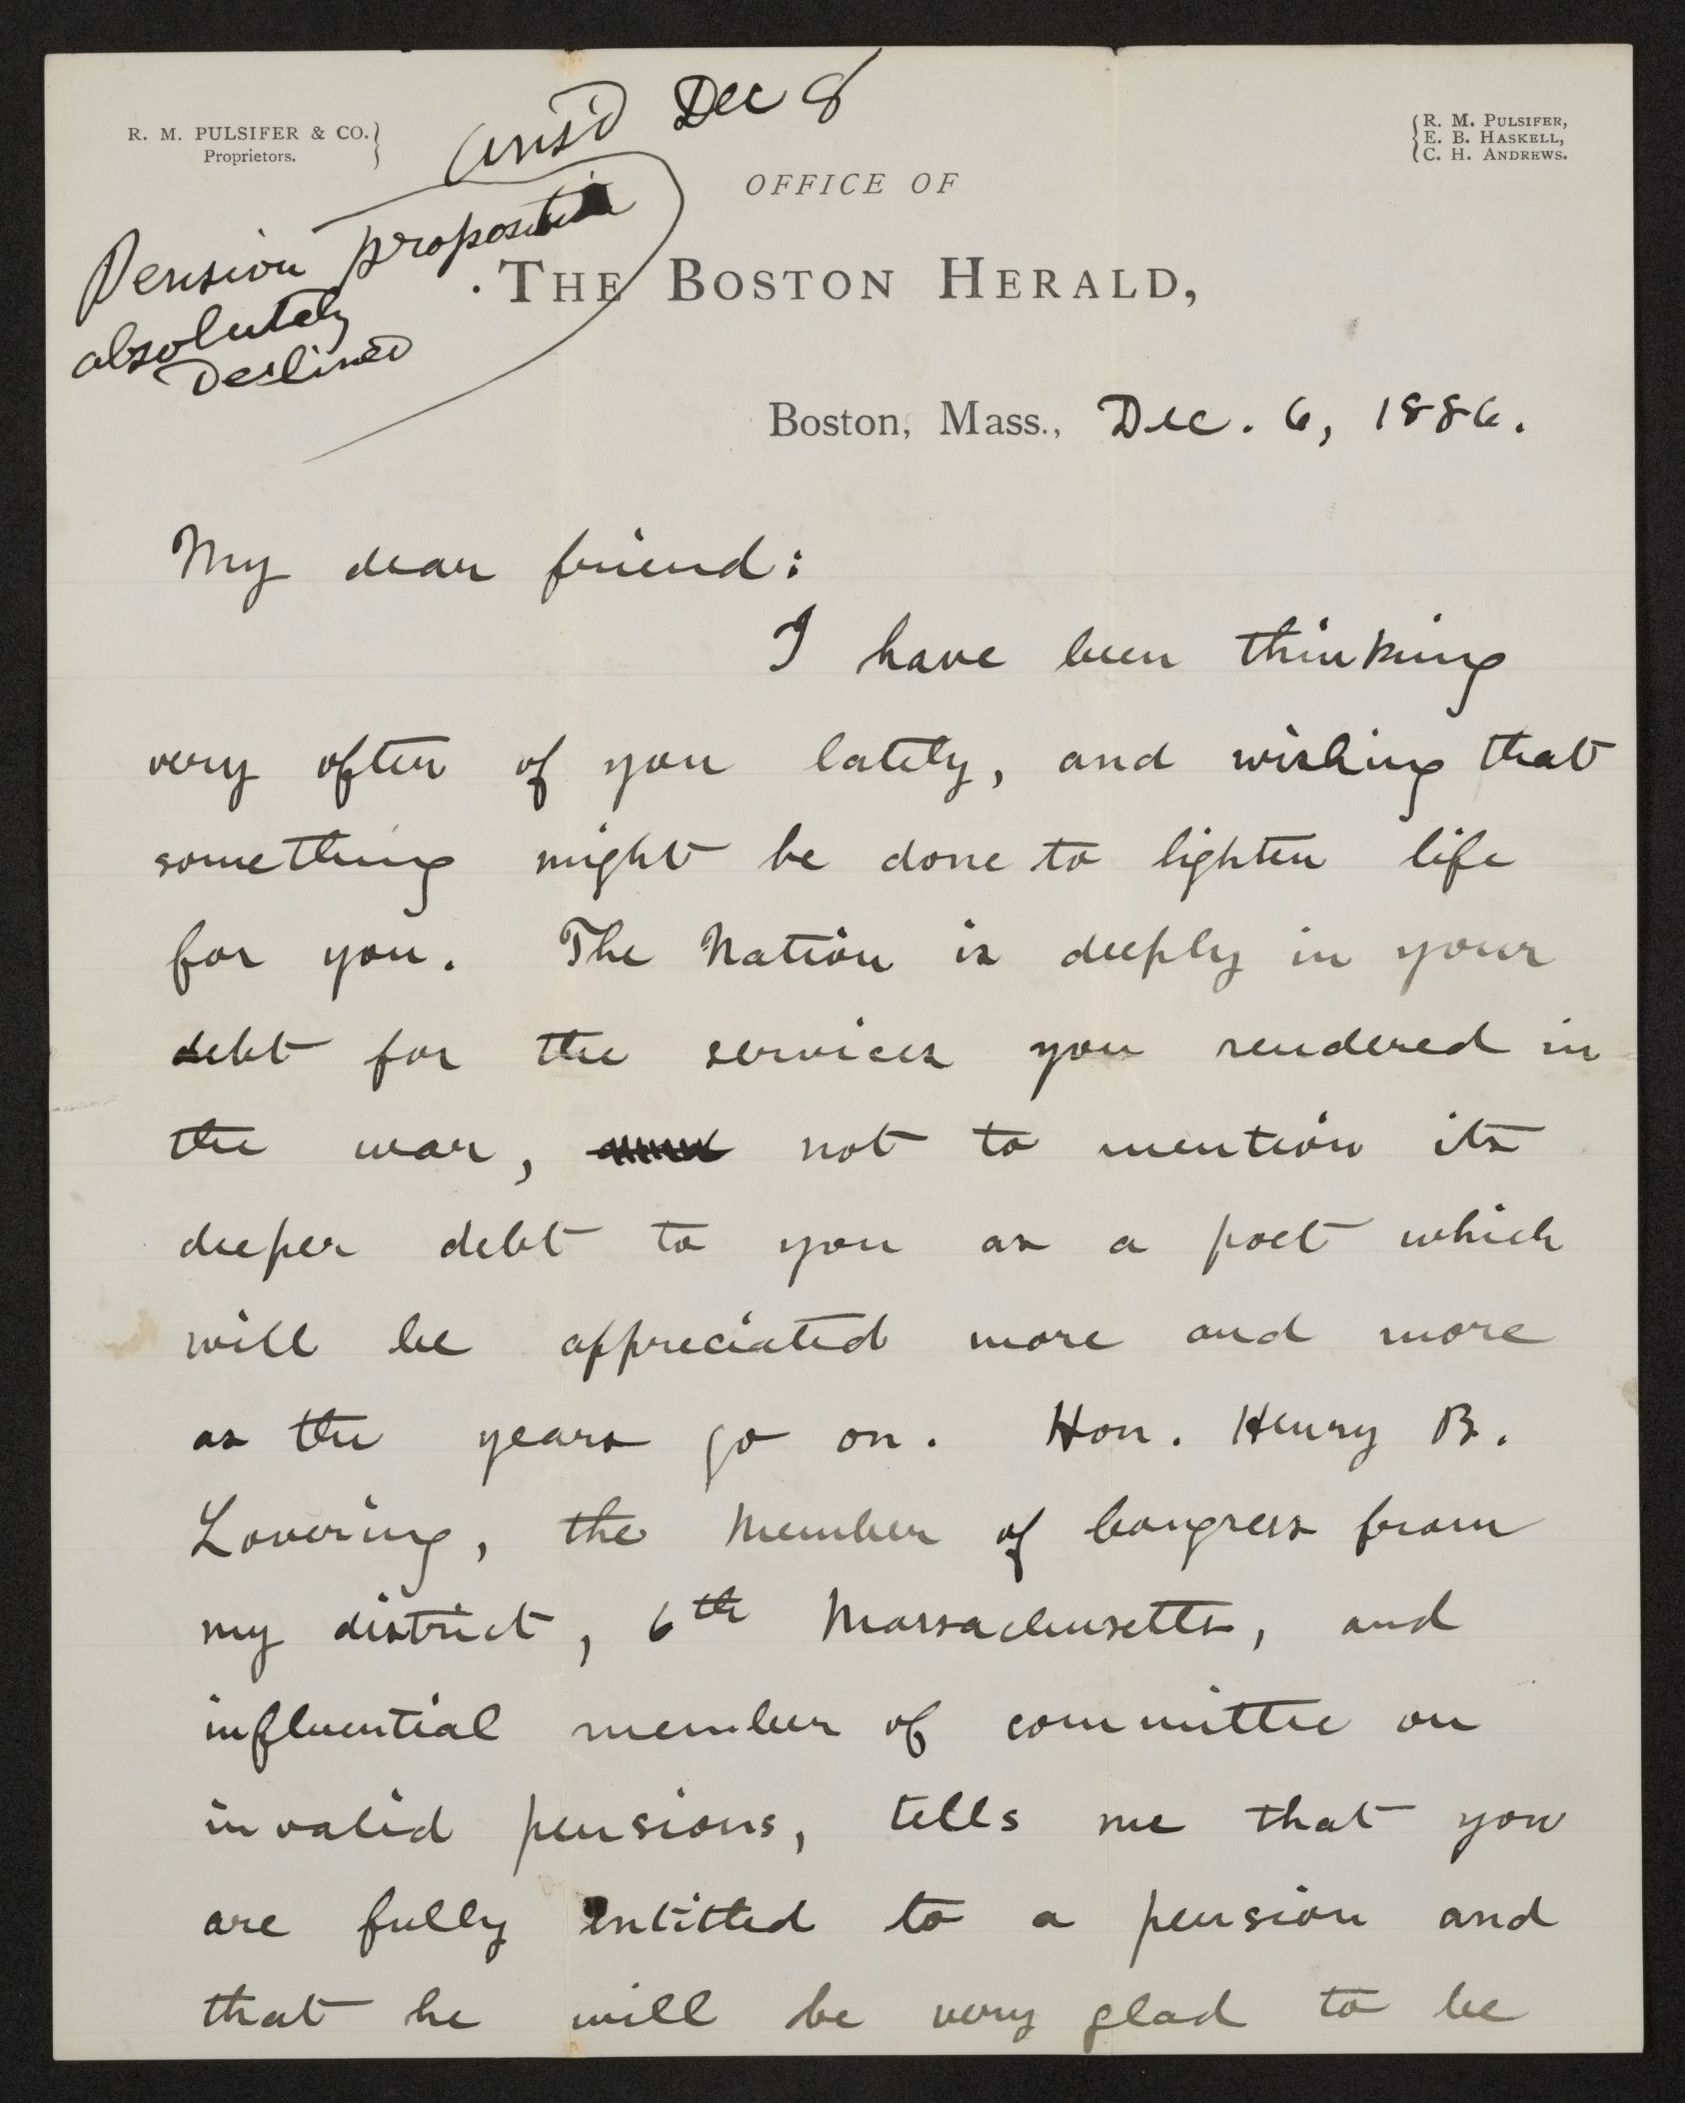 R. M. PULSIFER & CO.
Proprietors.
R. M. PULSIFER,
E. B. HASKELL,
C. H. ANDREWS.
ans'd Dec 8
Pension proposition
absolutely
Declined
OFFICE OF
THE BOSTON HERALD,
Boston, Mass., Dec. 6, 1886.
My dear friend:
I have been thinking
very often of you lately, and wishing that
something might be done to lighten life
for you. The Nation is deeply in your
debt for the services you rendered in
the war, not to mention its
deeper debt to you as a poet which
will be appreciated more and more
as the years go on. Hon. Henry B.
Lovering, the Member of Congress from
my district, 6th Massachusetts, and
influential member of committee on
invalid pensions, tells me that you
are fully entitled to a pension and
that he will be very glad to be